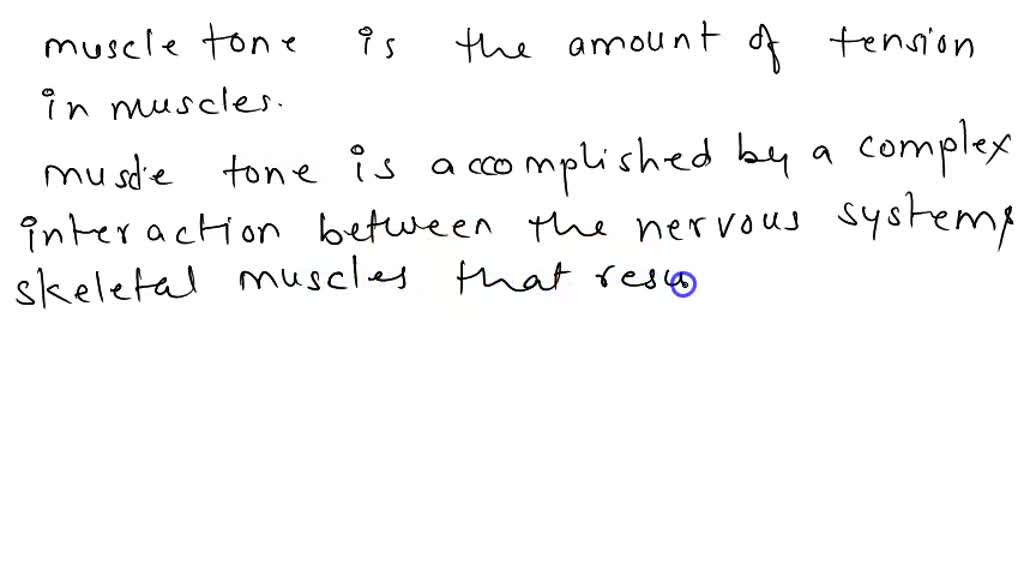 muscle tone is the amount of tension
in muscles.
muscle tone is accomplished by a complex
interaction between the nervous systems
skeletal muscles that resu